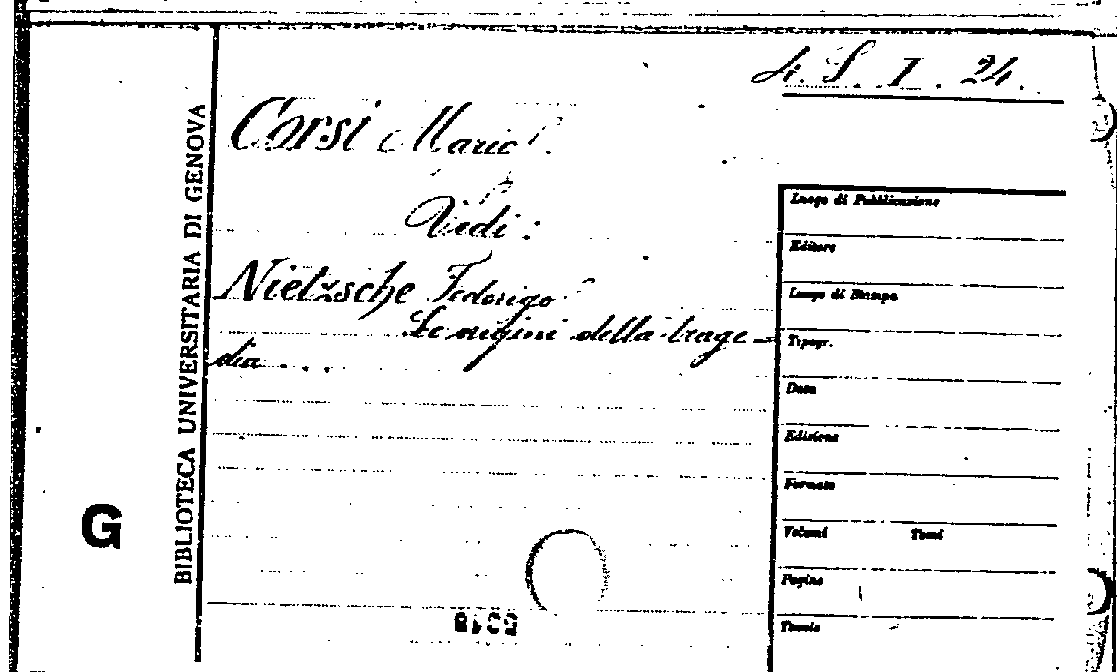 4. S. I. 24.
Corsi Mario.
Vedi:
Nietzsche Federigo
Le origini della trage-
dia ...
BIBLIOTECA UNIVERSITARIA DI GENOVA
G
Luogo di Pubblicazione
Editore
Luogo di Stampa
Tipogr.
Data
Edizione
Formato
Volumi Tomi
Pagine
Tavole